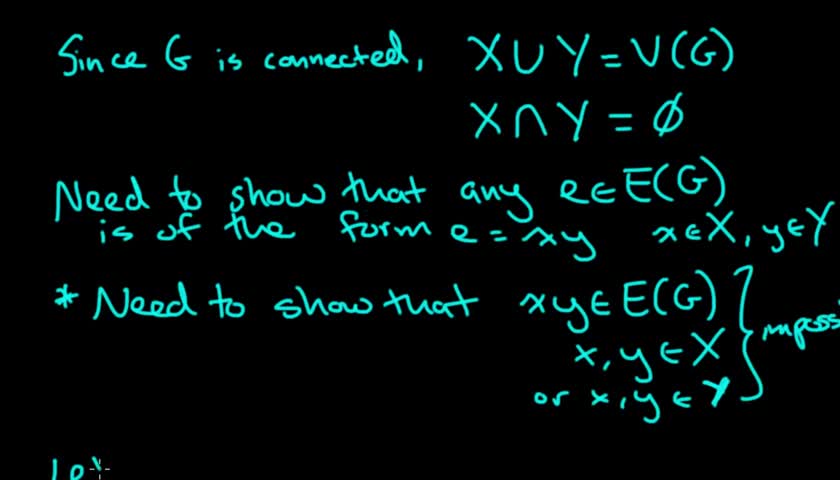 Since G is connected, X∪Y=V(G)
X∩Y=∅
Need to show that any e∈E(G)
is of the form e=xy x∈X, y∈Y
* Need to show that xy∈E(G)
x,y∈X
or x,y∈Y